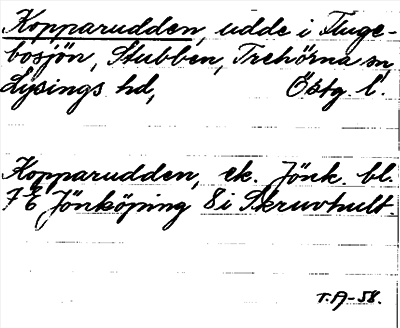 Kopparudden, udde i Fluge-
bosjön, Stubben, Trehörna sn
Lysings hd, Östg. l.
Kopparudden, ek. Jönk. bl.
7E Jönköping 8i Skruvhult.
T.A-58.